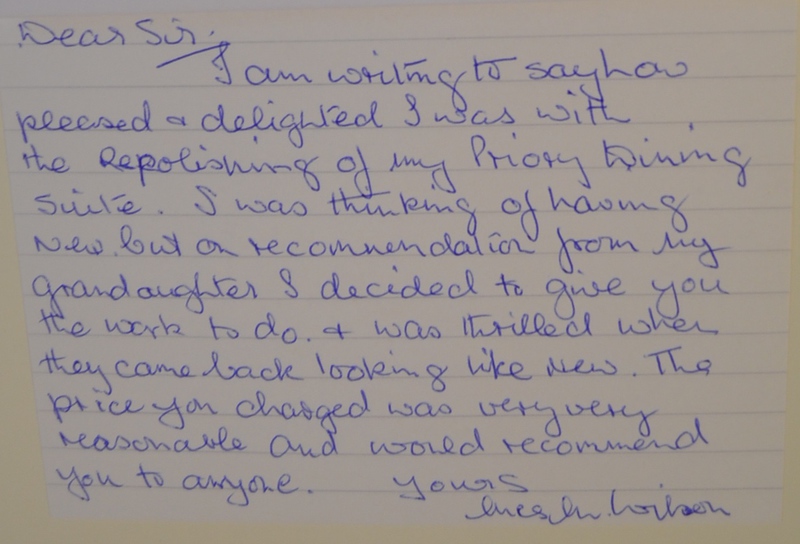 Dear Sir.
I am writing to say how
pleased & delighted I was with
the Repolishing of my Priory Dining
Suite. I was thinking of having
New. but on recommendation from my
grandaughter I decided to give you
the work to do. & was thrilled when
they came back looking like New. The
price you charged was very very
reasonable and would recommend
you to anyone. Yours
Wilson